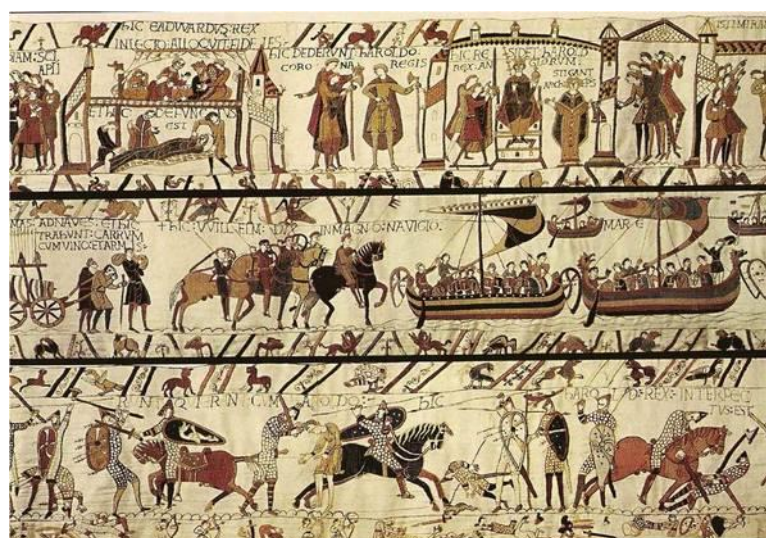 HIC EADWARDVS:REX
INLECTO:ALLOQVIT:FIDELES:
ET HIC: DEFVNCTVS
EST
HIC DEDERVNT:HAROLDO:
CORONA REGIS
HIC RE SIDET:HAROLD
REX:AN GLORVM:
STIGANT
ARCHIEPS
ISTI MIRAN
NAS:ADNAVES:ET HIC
TRAHVNT:CARRVM
CVM VINO:ET ARMIS:
†HIC:VVILLELM:
IN MAGNO:NAVIGIO:
MARE
HIC
HAROLD:REX:INTERFEC
TVS:EST